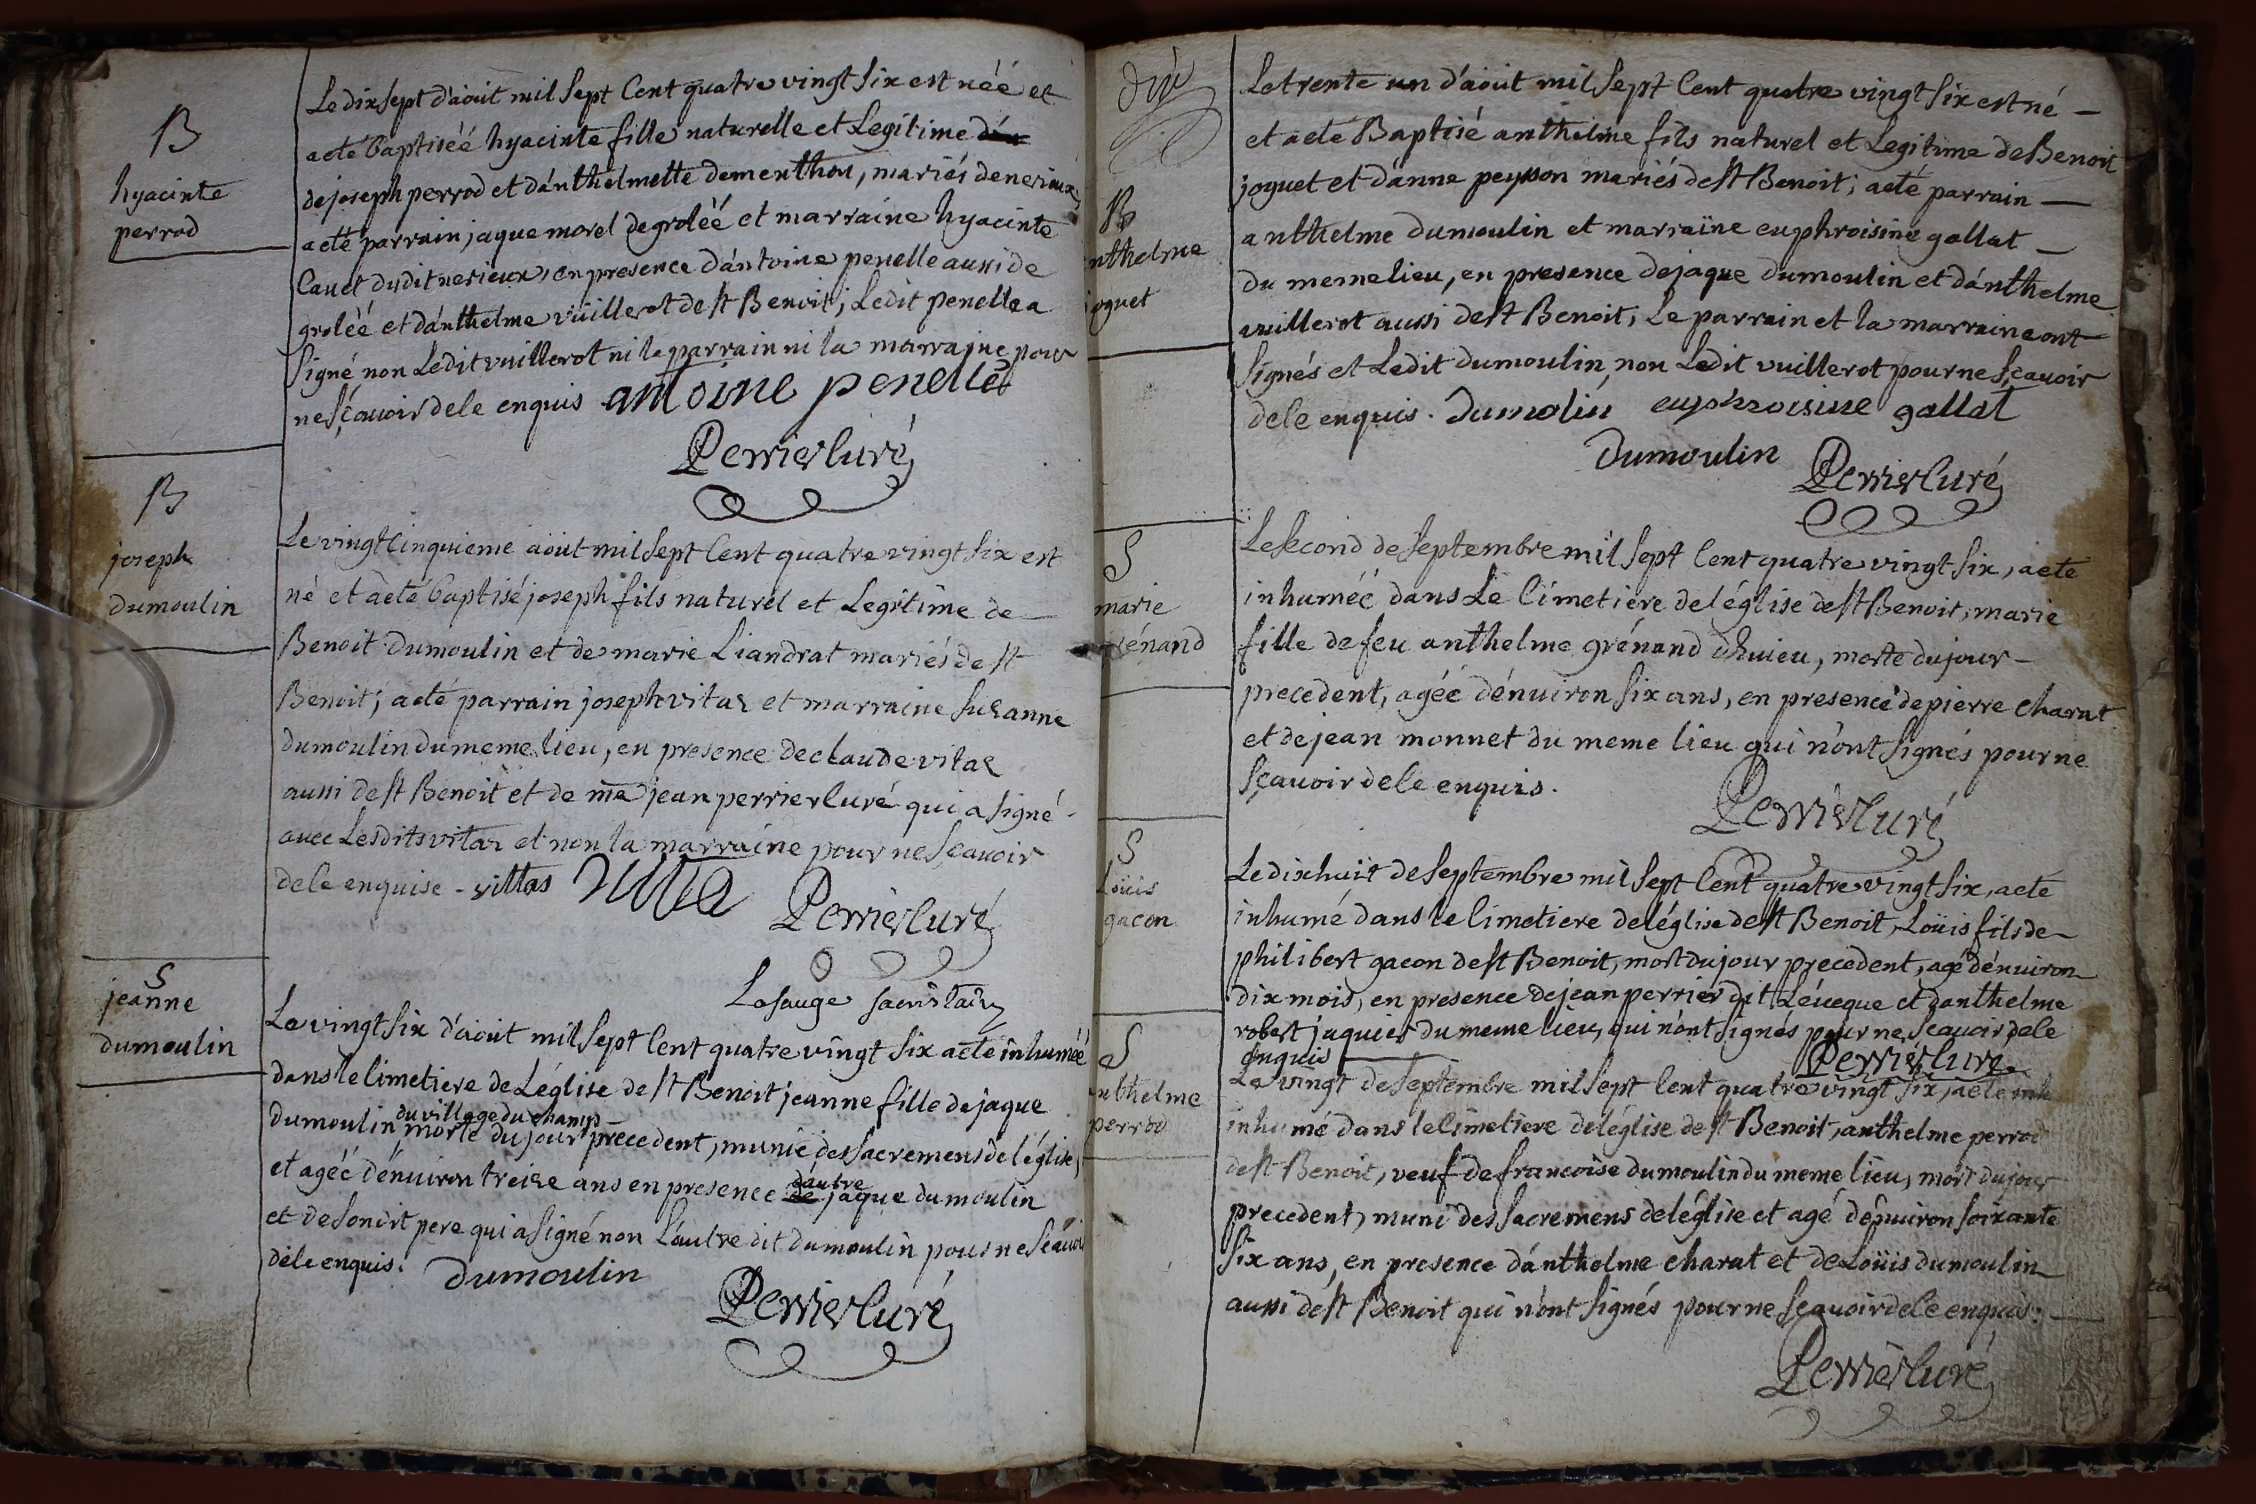 B
hyacinte
perrod
Le dixsept d'aout mil sept Cent quatre vingt six est néé et
a eté baptiséé hyacinte fille naturelle et Legitime
de joseph perrod et d'anthelmette dementhon, mariés de nerieux,
a eté parrain jaque morel de groléé et marraine hyacinte
Cauet dudit nerieux, en presence d'antoine penelle aussi de
groléé et d'anthelme vüillerot de st Benoit; Ledit penelle a
signé non Ledit vuillerot ni le parrain ni la marraine pour
ne sçavoir de le enquis antoine penelle
Perrier Curé
B
joseph
dumoulin
Le vingt Cinquieme aout mil sept Cent quatre vingt six est
né et a eté baptisé joseph fils naturel et Legitime de
Benoit Dumoulin et de marie Liandrat mariés de st
Benoit; a eté parrain joseph vitaz et marraine suzanne
dumoulin du meme lieu, en presence de claude vitaz
aussi de st Benoit et de me jean perrier Curé qui a signé
avec Lesdits vitaz et non la marraine pour ne sçavoir
de le enquise - vittas
Perrier Curé
Lasauge sacristain
S
jeanne
dumoulin
Le vingt six d'aout mil sept Cent quatre vingt six a eté inhuméé
dans le Cimetiere de L'église de st Benoit jeanne fille de jaque
du village du champ
dumoulin morte du jour precedent, munie des sacremens de l'église,
et agéé d'énuiron treize ans en presence d'autre jaque dumoulin
et de sondit pere qui a signé non L'autre dit dumoulin pour ne sçauoir
de le enquis. Dumoulin
Perrier Curé
dix
B
nthelme
joguet
Le trente un d'aout mil sept Cent quatre vingt six est né
et a eté Baptisé anthelme fils naturel et Legitime de Benoit
joguet et d'anne peysson mariés de st Benoit; a eté parrain
anthelme dumoulin et marraine euphroisine gallat
du meme lieu, en presence de jaque dumoulin et d'anthelme
vuillerot aussi de st Benoit, Le parrain et la marraine ont
signés et Ledit dumoulin, non Ledit vuillerot pour ne sçavoir
de le enquis. Dumolin euphroisine gallat
Dumoulin
Perrier Curé
S
marie
rénand
Le second de septembre mil sept Cent quatre vingt six, a eté
inhuméé dans Le Cimetiere de l'église de st Benoit, marie
fille de feu anthelme grénand d'huieu, morte du jour
precedent, agéé d'énuiron six ans, en presence de pierre charat
et de jean monnet du meme lieu qui n'ont signés pour ne
sçavoir de le enquis.
Perrier Curé
S
Loüis
gacon
Le dixhuit de septembre mil sept Cent quatre vingt six, a eté
inhumé dans le Cimetiere de l'église de st Benoit, Loüis fils de
philibert gacon de st Benoit, mort du jour precedent, agé d'énuiron
dix mois, en presence de jean perrier dit Léveque et d'anthelme
robert jaquier du meme lieu, qui n'ont signés pour ne sçavoir de le
enquis
Perrier Curé
S
nthelme
perrod
Le vingt de septembre mil sept Cent quatre vingt six, a eté inh
inhumé dans le Cimetiere de l'église de st Benoit, anthelme perrod
de st Benoit, veuf de francoise dumoulin du meme lieu, mort du jour
precedent, muni des sacremens de l'église et agé d'énuiron soixante
six ans, en presence d'anthelme charat et de Loüis dumoulin
aussi de st Benoit qui n'ont signés pour ne sçavoir de le enquis.
Perrier Curé